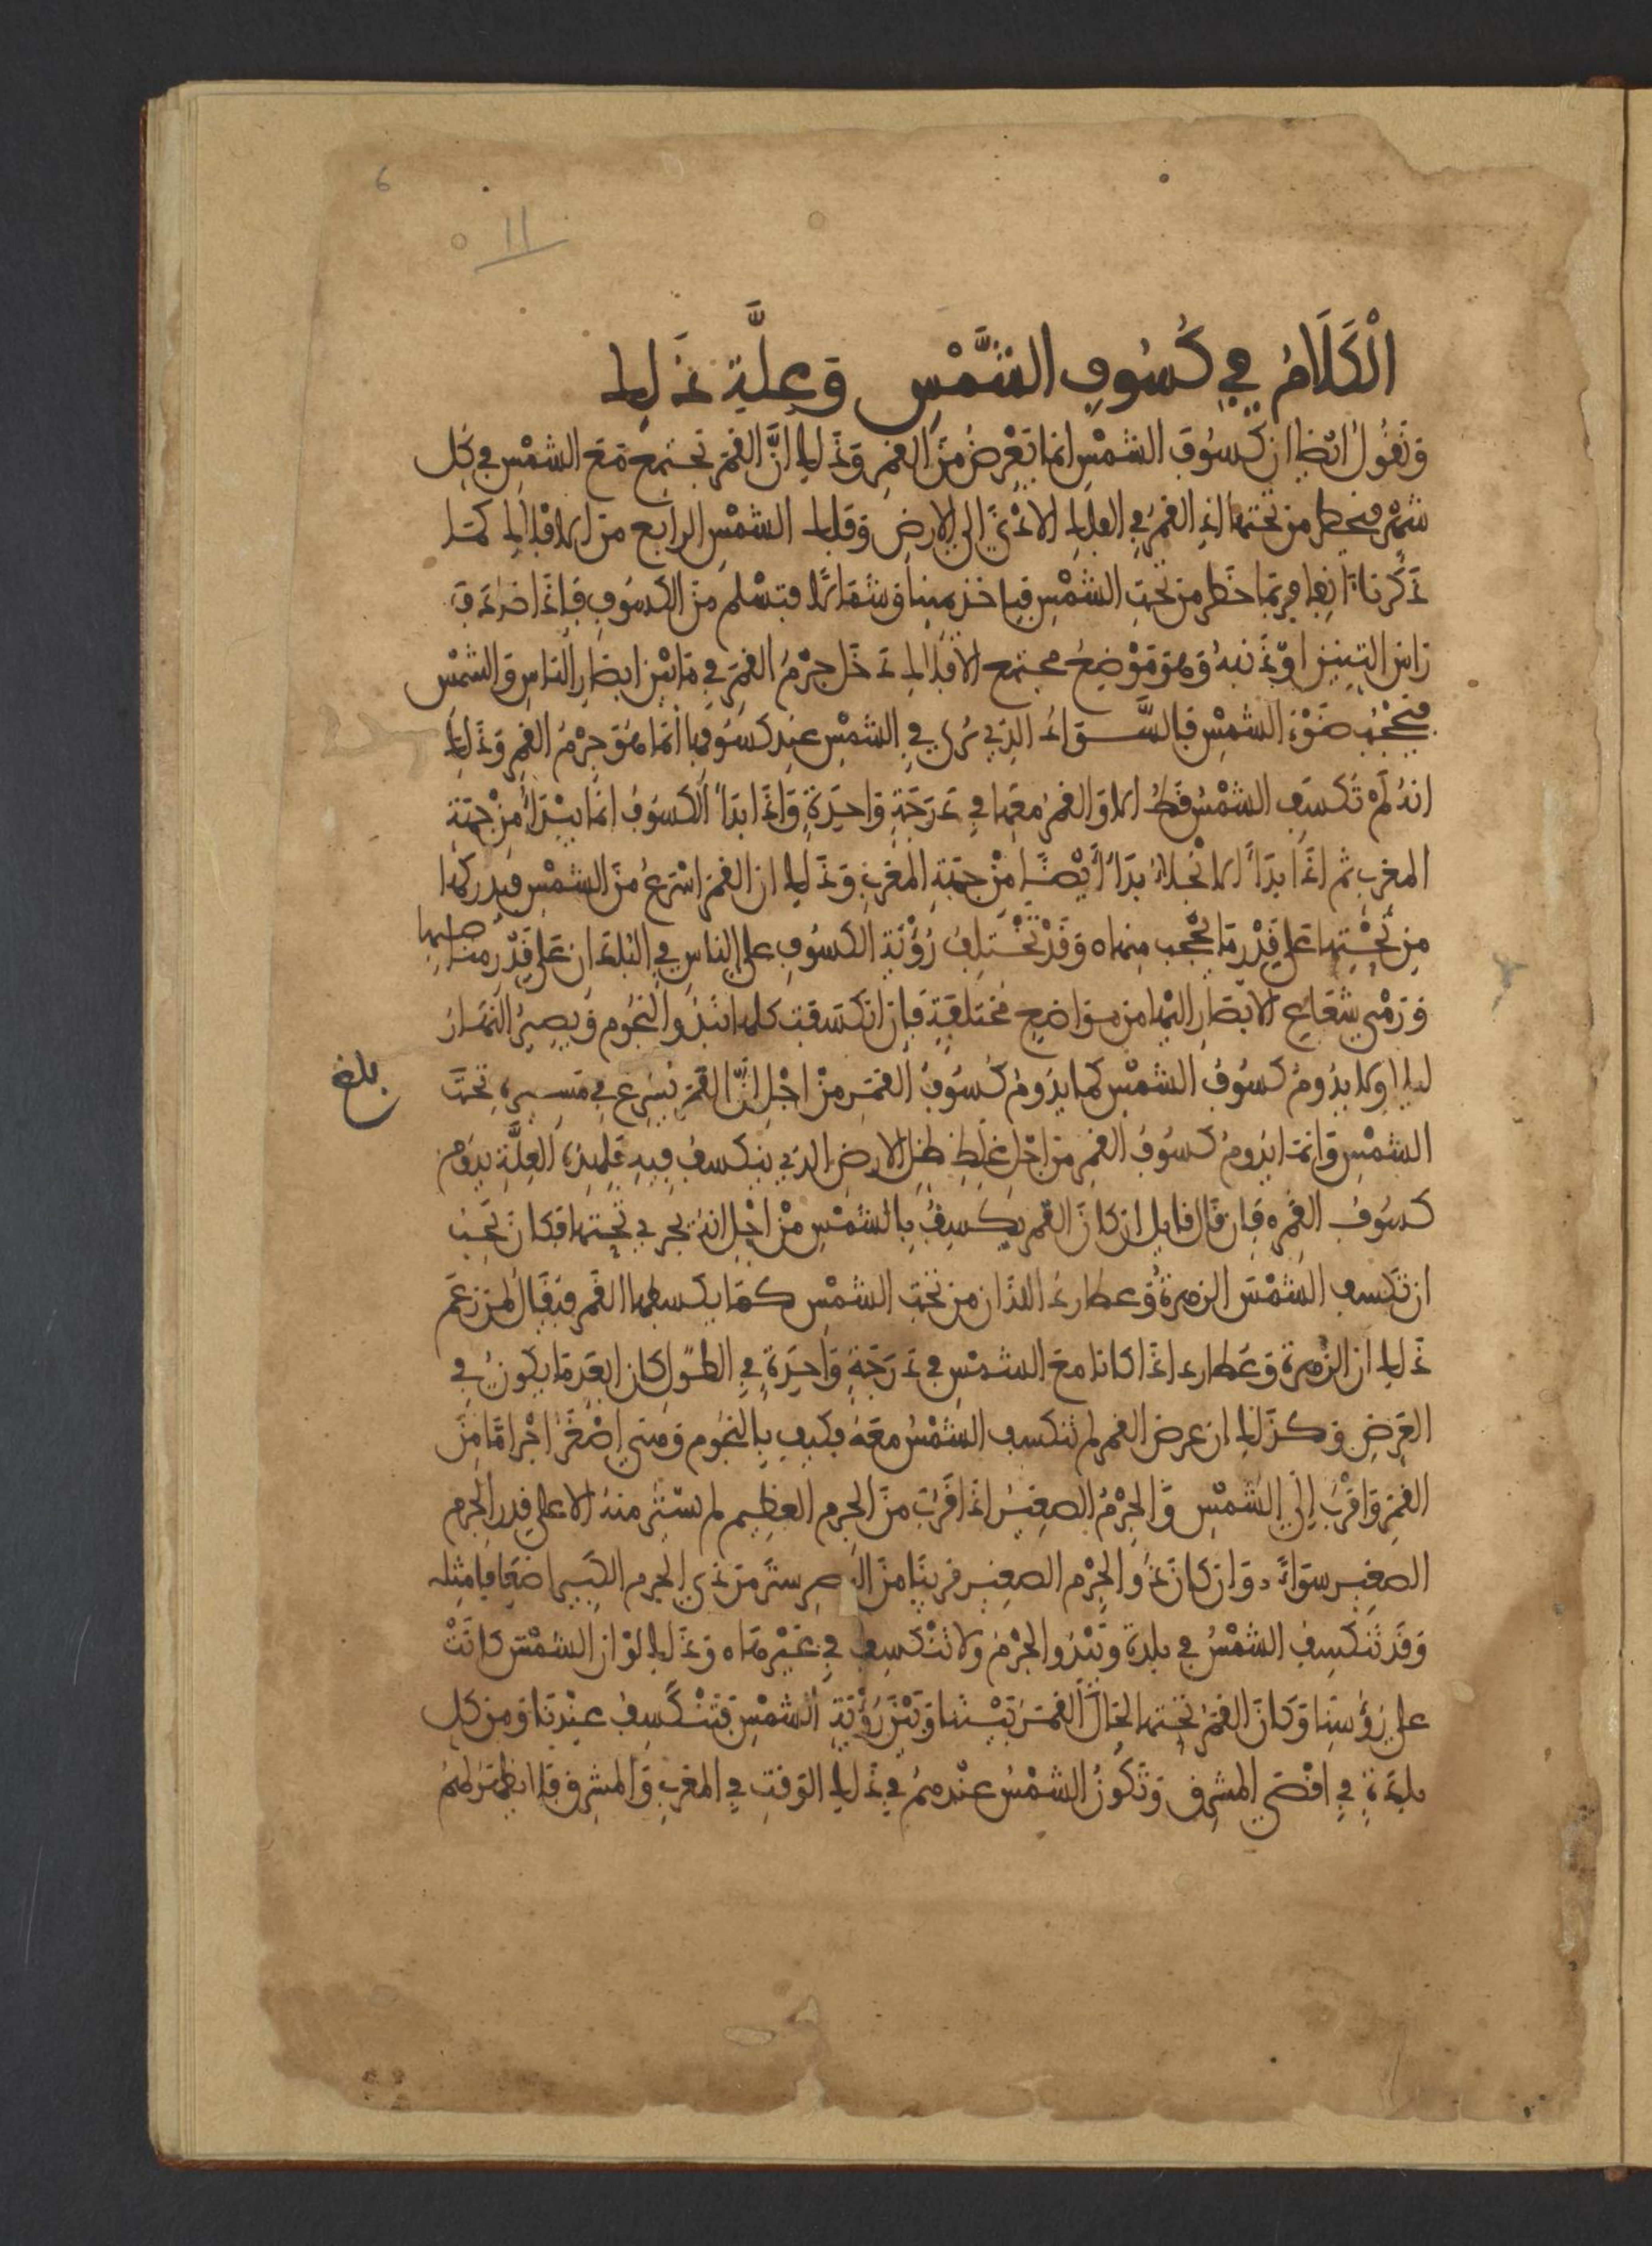 6
11
الْكَلَامُ في كُسُوفِ الشَّمْسِ وَعِلَّةِ ذَلِك
وَنَقُولُ ايْضا ان كُسُوفَ الشمْسِ انما يَعْرِضُ مِنَ القَمَرِ وَذَلك انَّ القَمَرَ يَجتَمِع مَعَ الشمْسِ في كُلِ
شهْرٍ فيخطر من تحتها اذِ القمَرُ في الفلك الادْنَى الى الارضِ وَفلك الشمْسِ الرابع من الافلاك كمَا
ذَكَرنا انِفا فربّما خَطر من تَحْتِ الشمْسِ فياخذ يمينا وَشمَالا فتسْلم منَ الكسُوفِ فاذا صَادَفَ
رَاسَ التِنين اوْ ذَنبهُ وَهوَ مَوْضِعُ مجتمع الافلاك دَخَل جرْمُ القمَرِ في مَا بَيْن ابصَارِ الناسِ وَالشمْسِ
فيحْجُب ضَوْءَ الشمْسِ فالسَّوَادُ الذِي يُرى في الشمْسِ عِنِد كسُوفِهَا انمَا هُوَ جِرْمُ القمَرِ وَذَلك
انهُ لَمْ تَكسِفِ الشمْسُ قطُّ الا وَالقمَرُ معَهَا في دَرَجَةٍ وَاحِدَةٍ وَاذَا بَدَأ الكسُوفُ انمَا يبْتَدأ مِنْ جهَة
المغرب ثم اذَا بَدَأ الانْجلاءُ بَدَأ أيْضًا مِنْ جهَةِ المَغربِ وَذَلك ان القَمَر اسْرَعُ منَ الشمْسِ فيدركهَا
مِن تَحْتِها عَلى قَدْرِ مَا يَحْجب مِنها ه وَقدْ تَخْتَلِفُ رُؤْيَةِ الكسُوفِ على الناسِ في البُلدَان عَلى قَدْرِ مناصبها
وَرَمْيِ شعَاعِ الابْصَارِ اليْهَا من مواضِعِ مُختلفَةِ فَاِن انكسَفت كلها تبْدُو النجُوم وَيصيرُ النهَارُ
ليلا وَلا يدُومُ كسُوفُ الشمْسِ كما يدُومُ كُسُوفُ القَمَرِ منْ اجْلِ انّ القَمَرَ يسْرع في مَسيرِهِ تحتَ
بلغ
الشمْسِ وَانمَا يدُومُ كسُوفُ القمَرِ مِن اجْلِ غِلَظِ ظِلِ الارضِ الذِي ينكسفُ فيهِ فَلِهذِهِ العِلَّةِ يدُوم
كسُوفُ القمَرِ ه فإن قَال قايل ان كانَ القَمَر يكسِفُ بالشمْسِ مِنْ اجْلِ انهُ يجرِي تحتها فكان يجب
ان تكسف الشمْسَ الزهرةُ وَعطارد اللذَان من تَحْتِ الشمْسِ كمَا يكسفها القَمَر فيقَال لمن زعَم
ذَلك ان الزُهرة وَعَطارد اذَا كانا معَ الشمْسِ في دَرَجَةٍ وَاحِدَةٍ في الطُول كان ابعَد مَا يكونُ في
العَرضِ وَكذَلك ان عرض القمر لم تنكسف الشمْسُ معَهُ فكيف بالنجُوم وَهيَ اصْغَرُ اجْرامًا مِنَ
القمَرِ وَاقرَبُ اِلَى الشمْسِ وَالجِرْمُ الصغيرُ اذَا قَرُبَ منَ الجرم العظِيم لم يسْتُر منهُ الا على قدر الجرم
الصغِير سوَاءً وَان كانَ ذُو الجِرْم الصغِيرِ قريبًا منَ البصر ستَر مِن ذي الجرم الكبير اضعَافا مثله
وَقَد تَنكسِفُ الشمْسُ في بلدة وَيَبْدُو الجْرْم وَلا تَنْكسِف في غيْرهَا ه وَذَلك لوْ ان الشمْسَ كَانَتْ
على رُؤسِنا وَكَانَ القَمَرُ تحتها لحَالَ القَمَرَ بَيْننَا وَبَيْن رُؤْيَةِ الشمْسِ فتَنْكسِفُ عِنْدَنا وَمن كل
بلدَة في اقْصَى المشرِق وَتَكُونُ الشمْسُ عنْدهمُ في ذَلك الوَقتِ في المغرب وَالمشرِق فلا يظهَر لهمُ